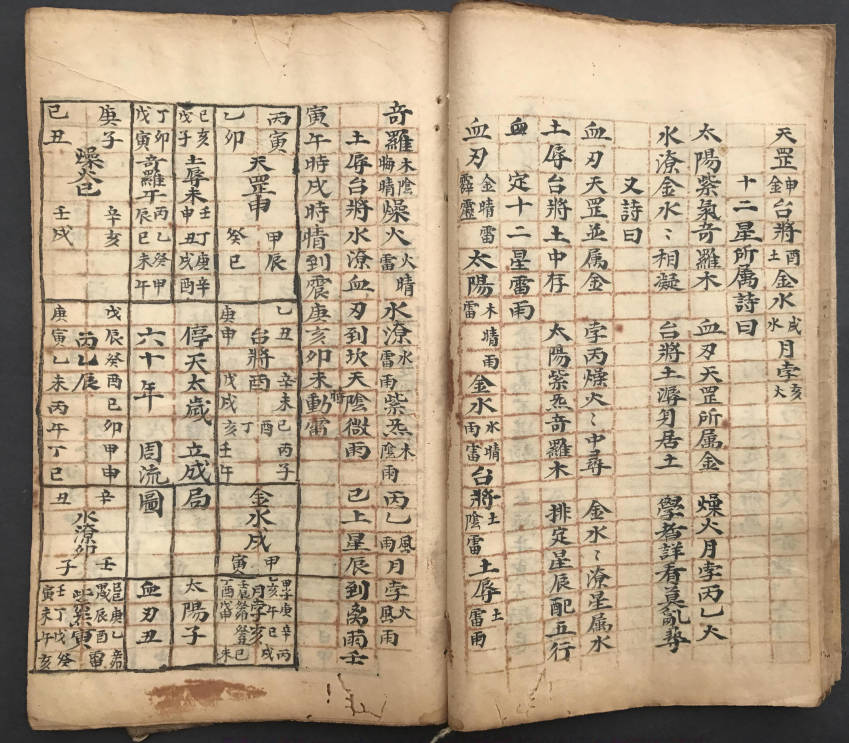 天罡金申台將土酉金水水戌月孛火亥
十二星所属詩曰
太陽紫氣奇羅木 血刃天罡所属金 燥火月孛丙乙火
水潦金水〻相凝 台將土溽身居土 學者詳看莫亂尋
又詩曰
血刃天罡並属金 孛丙燥火〻中尋 金水〻潦星属水
土溽台將土中存 太陽紫炁奇羅木 排定星辰配五行
血定十二星雷雨
血刃金晴雷霹靂太陽木晴雨雷金水水晴雨雷台將土陰雷土溽土雷雨
奇羅木陰晦晴燥火火晴雷水潦水雷雨紫炁木陰雨丙乙風雨月孛火風雨
土溽台將水潦血刃到坎天陰微雨 已上星辰到离雨壬
寅午時戌時晴到震庚亥卯未動雷將
丙寅 乙卯 天罡申 甲辰 癸巳
己亥 戊子 土溽未 壬申 丁丑 庚戌 辛酉
丁卯 戊寅 奇羅午 丙辰 乙巳 癸未 甲午
庚子 己丑 燥火巳 辛亥 壬戌
乙丑 庚申 台將酉 辛未 己巳 丙子 戊戌 丁酉 亥 壬午
停天太歲 立成局
六十年 周流圖
戊辰 癸酉 己卯 甲申 丙乙辰 庚寅 乙未 丙午 丁巳
金水戌 甲寅
太陽子
血刃丑
辛丑 水潦卯 壬子
月孛亥
紫炁寅